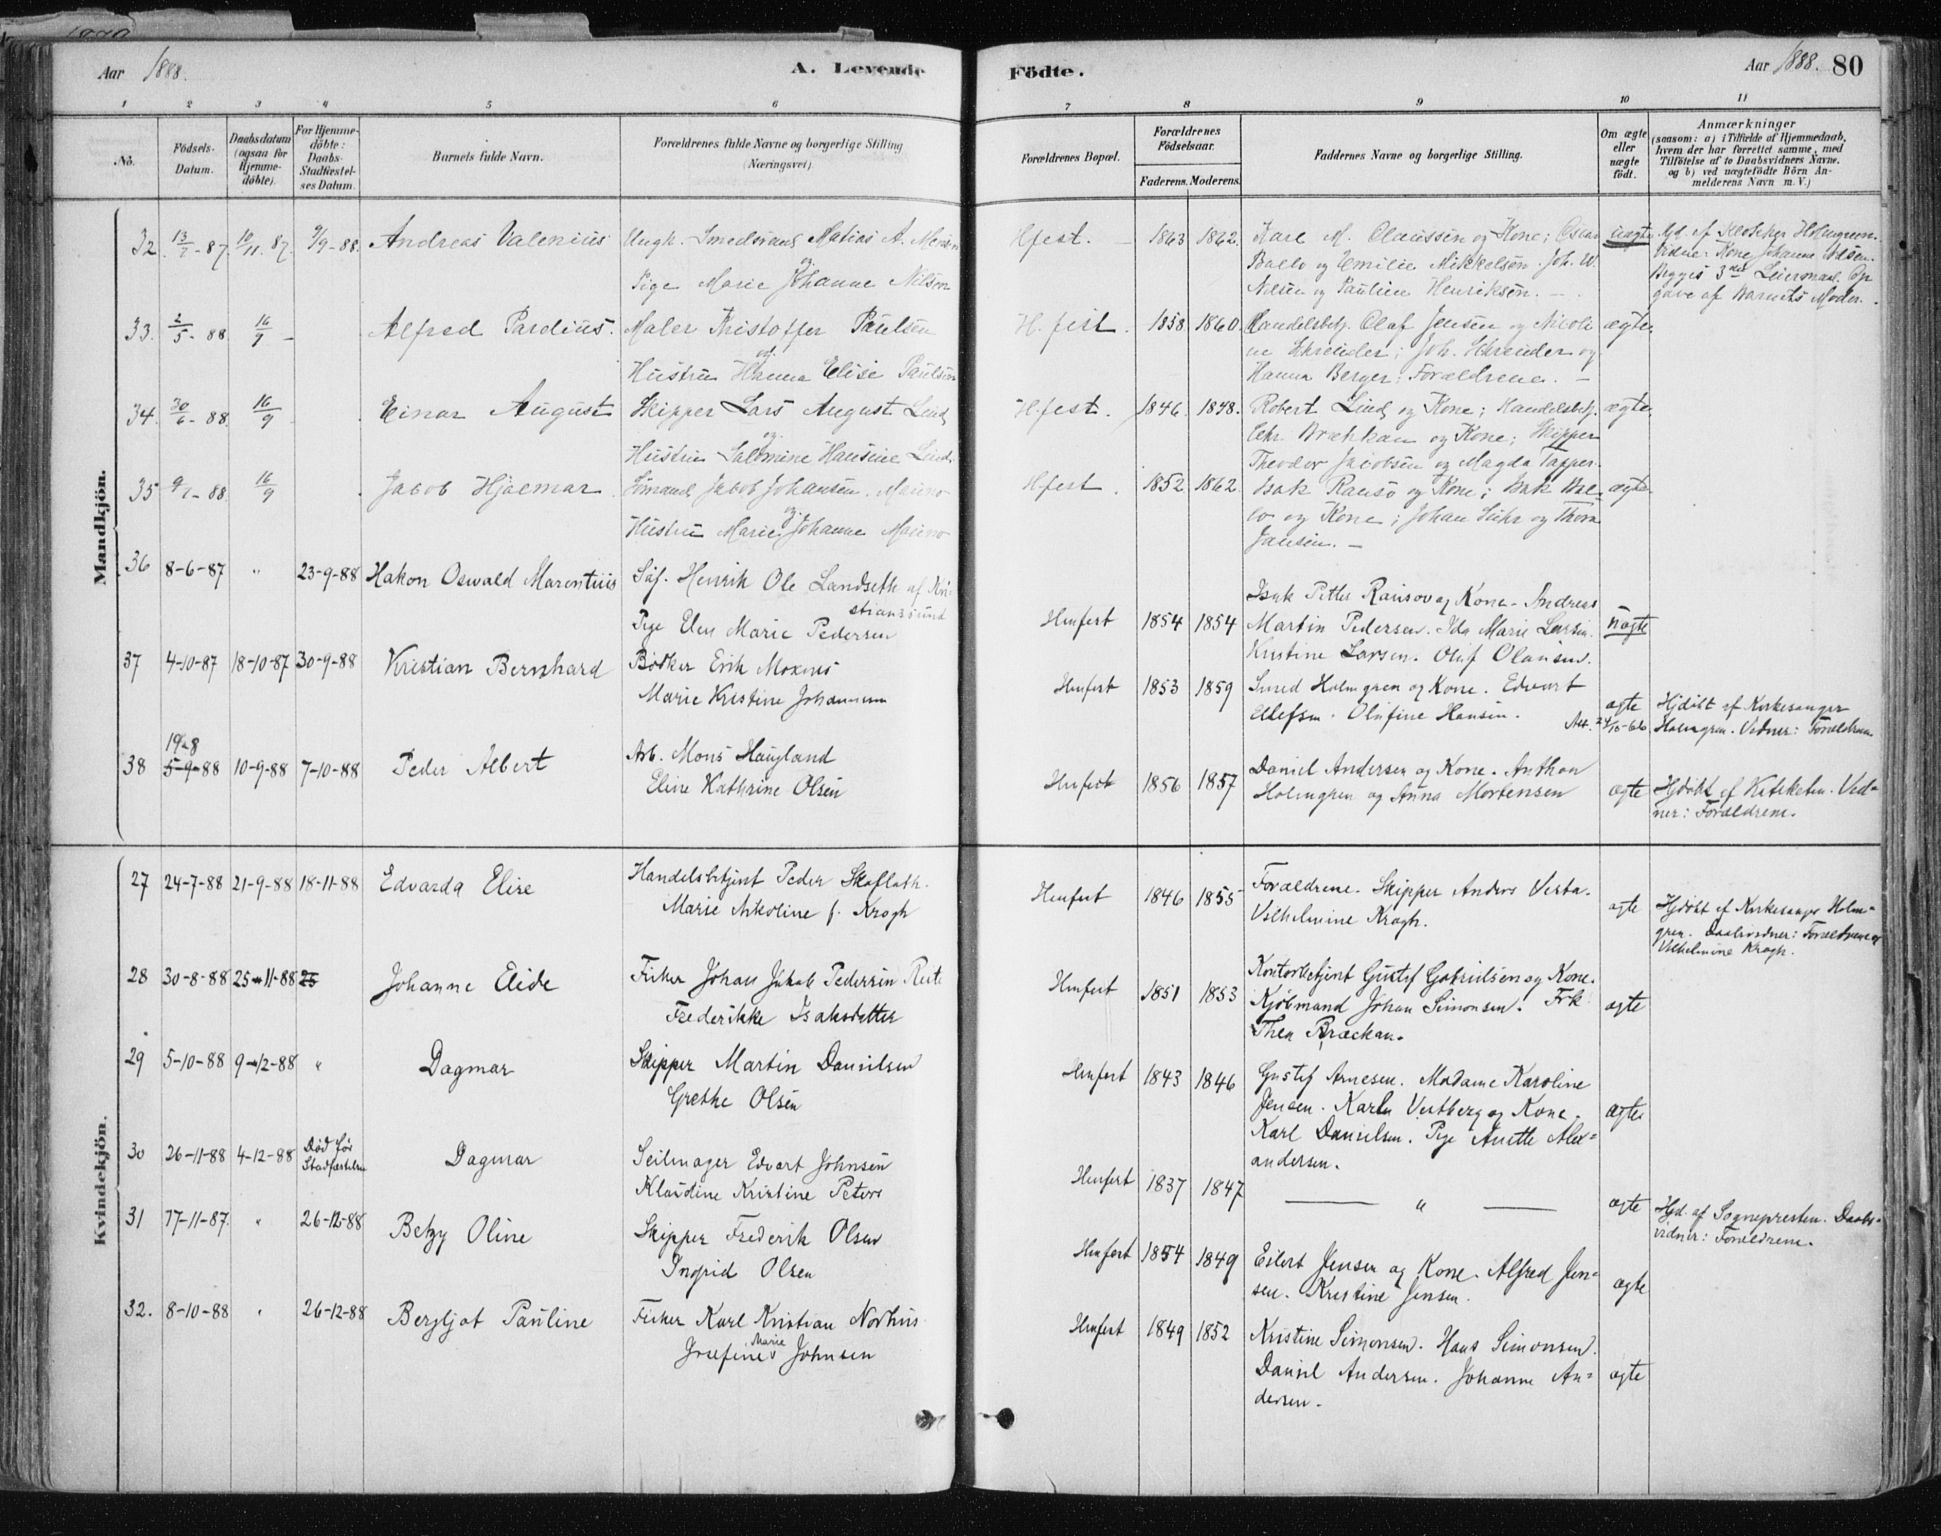 Aar 1888.
A. Levende
Födte.
Aar 1888. 80
1 2 3 4 5 6 7 8 9 10 11
No.
Födsels-
Datum.
Daabsdatum
(ogsaa for
Hjemme-
döbte).
For Hjemme-
döbte:
Daabs-
Stadfæstel-
ses Datum.
Barnets fulde Navn.
Forældrenes fulde Navne og borgerlige Stilling
(Næringsvei).
Forældrenes Bopæl.
Forældrenes
Födselsaar.
Faderens. Moderens.
Faddernes Navne og borgerlige Stilling.
Om ægte
eller
uægte
födt.
Anmærkninger
(saasom: a) i Tilfælde af Hjemmedaab,
hvem der har forrettet samme, med
Tilföielse af to Daabsvidners Navne.
og b) ved uægtefödte Börn An-
melderens Navn m. V.)
Mandkjön.
32. 13/7-87. 10/11.87. 9/9-88. Andreas Valenius
Ungk. Smedsvend Matias A.
og
Pige Marie Johanne Nilsen
Hfest. 1863 1862.
Karl M. Claussen og Kone; Oscar
Ballo og Emilie Mikkelsen. Joh. W.
Nilsen og Pauline Henriksen. —
uægte
Hjd. af Klokker Holmgreen.
Vidner: Kone Johanne Nilsen.
Begges 3die Leiermaal. Op
gave af Barnets Moder.
33. 2/5-88 16/9 - Alfred Pardius.
Maler Kristoffer Paulsen
og
Hustru Hanna Elise Paulsen
H.fest. 1858 1860.
Handelsbetj. Olaf Jensen og Nicoli
ne Schreuder; Joh. Schreuder og
Hanna Berger; Forældrene. —
ægte.
34. 30/6-88. 16/9 - Einar August
Skipper Lars August Lind
og
Hustru Salomine Hansine Lind.
H.fest. 1846. 1848.
Robert Lind og Kone; Handelsbetj.
Chr. Brækkan og Kone; Skipper
Theodor Jacobsen og Magda Tapper.
ægte.
35 9/1-88. 16/9 Jacob Hjalmar
Sömand Jakob Johansen.
og
Hustru Marie Johanne
Hfest. 1852 1862
Isak Rausö og Kone; Isak
og Kone; Johan Suhr og Thora
Jansen. —
ægte
36 8-6-87 " 23-9-88 Hakon Oswald Marentius
Søf. Henrik Ole Landseth af Kri-
stianssund
Pige Elen Marie Pedersen
Hmfest 1854 1854
Isak Petter Rausov og Kone. Andreas
Martin Pedersen. Ida Marie Larsen.
Kristine Larsen. Oluf Olausen.
uægte
37 4-10-87 18-10-87 30-9-88 Kristian Bernhard
Bødker Erik Moxnes
Marie Kristine Johannesen
Hmfest 1853 1859
Smed Holmgren og Kone. Edvart
Ellefsen. Olufine Hansen.
ægte
Hjdøbt af Kirkesanger
Holmgren. Vidner: Forældrene
38 19-8 5-9-88 10-9-88 7-10-88 Peder Albert
Arb. Mons Haugland
Eline Kathrine Olsen
Hmfest 1856 1857
Daniel Andersen og Kone. Anthon
Holmgren og Anna Mortensen
ægte
Hjdøbt af Kateketen. Vid-
ner: Forældrene.
Kvindekjön.
27 24-7-88 21-9-88 18-11-88 Edvarda Elise
Handelsbetjent Peder Skafloth.
Marie Nikoline f. Krogh
Hmfest 1846 1855
Forældrene. Skipper Anders Vesta.
Vilhelmine Krogh.
ægte
Hjdøbt af Kirkesanger Holm-
gren. Daabsvidner: Forældrene og
Vilhelmine Krogh.
28 30-8-88 25-11-88 25 Johanne Elide
Fisker Johan Jakob Pedersen
Frederikke Isaksdatter
Hmfest 1851 1853
Kontorbetjent Gustef Gabrielsen og Kone.
Kjøbmand Johan Simonsen. Frk
Thea Bræckan.
ægte
29 5-10-88 9-12-88 " Dagmar
Skipper Martin Danielsen
Grethe Olsen
Hmfest 1843 1846
Gustef Arnesen. Madame Karoline
Jensen. Karl Vestberg og Kone.
Karl Danielsen. Pige Anette Alex-
andersen.
ægte
30 26-11-88 4-12-88 Død før
Stadfæstelsen
Dagmar
Seilmager Edvart Johnsen
Klaudine Kristine Peters
Hmfest 1837 1847
— " —
ægte
Hjd. af Sognepresten. Daabs-
vidner: Forældrene.
31 17-11-87. " 26-12-88 Betzy Oline
Skipper Frederik Olsen
Ingrid Olsen
Hmfest 1854 1849
Eilert Jensen og Kone. Alfred Jen-
sen. Kristine Jensen.
ægte
32. 8-10-88 " 26-12-88 Bergljot Pauline
Fisker Karl Kristian Norhus
Marie
Josefine Johnsen
Hmfest 1849 1852
Kristine Simonsen. Hans Simonsen.
Daniel Andersen. Johanne An-
dersen.
ægte